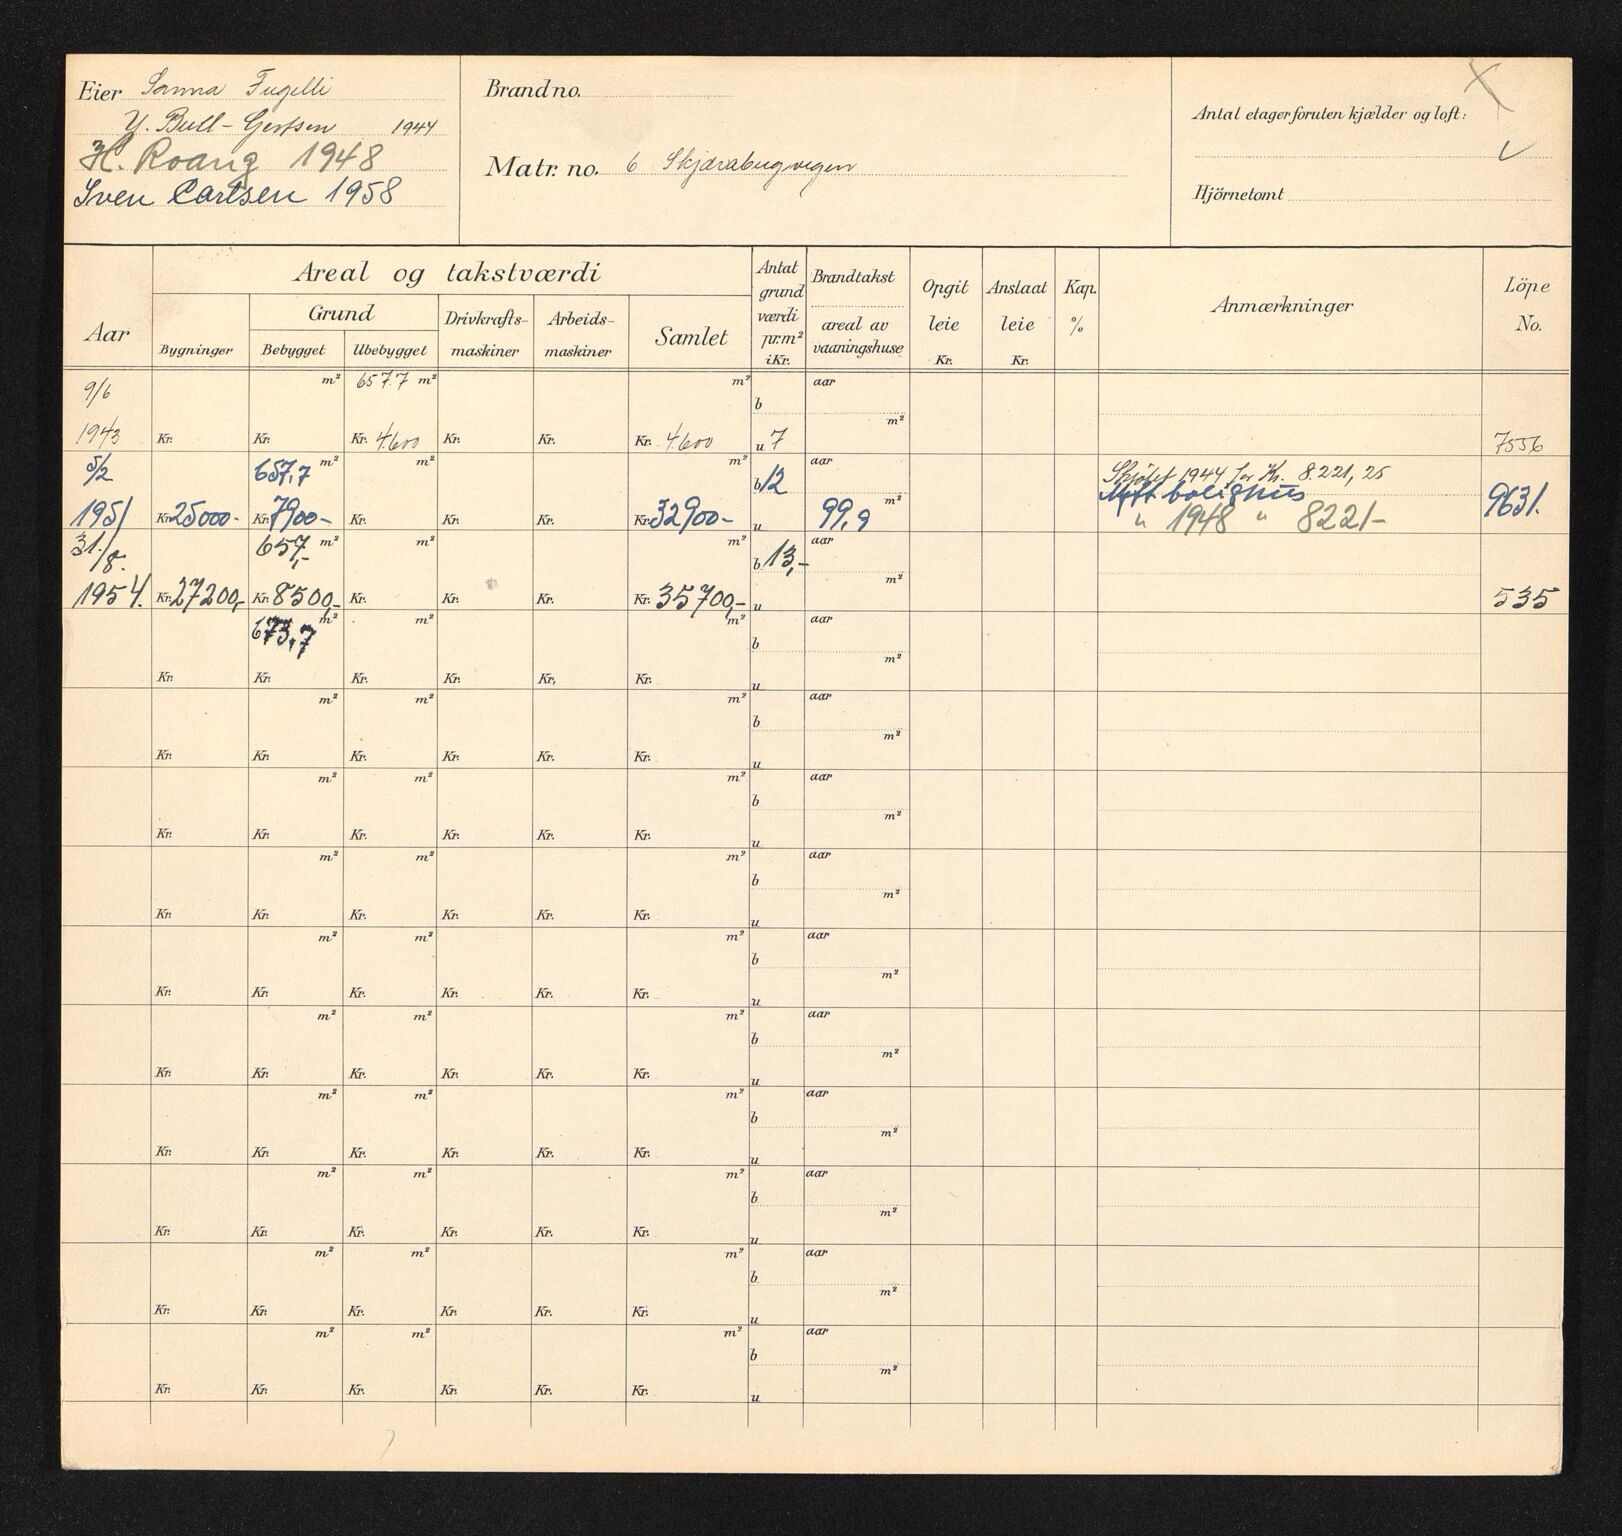 Eier Sanna Fugelli
Y. Bull-Gertsen 1944
H. Roang 1948
Sven Carlsen 1958
Brand no.
Matr. no. 6 Skjærabugvegen
Antal etager foruten kjælder og loft:
Hjörnetomt
Areal og takstværdi
Aar
Bygninger
Grund
Bebygget Ubebygget
Drivkrafts-
maskiner
Arbeids-
maskiner
Samlet
Antat
grund
værdi
pr. m²
i Kr.
Brandtakst
areal av
vaaningshuse
Opgit
leie
Kr.
Anslaat
leie
Kr.
Kap.
%
Anmærkninger
Löpe
No.
9/6 m² 657.7 m² m² aar
b
m²
1943 Kr. Kr. Kr. 4.600 Kr. Kr. Kr. 4.600 u 7 7556
5/2 657,7 m² m² m² aar Skjøtet 1944 for Kr. 8.221,25
b 12 m² Nytt bolighus
1951 Kr. 25000- Kr. 7900- Kr. Kr. Kr. Kr. 32900- u 99,9 " 1948 " 8221- 9631.
31./8. 657,- m² m² m² aar
b 13,-
m²
1954. Kr. 27200,- Kr. 8500,- Kr. Kr. Kr. Kr. 35700,- u 535
673,7 m² m² m² aar
b
m²
Kr. Kr. Kr. Kr. Kr. Kr. u
m² m² m² aar
b
m²
Kr. Kr. Kr. Kr. Kr. Kr. u
m² m² m² aar
b
m²
Kr. Kr. Kr. Kr. Kr. Kr. u
m² m² m² aar
b
m²
Kr. Kr. Kr. Kr. Kr. Kr. u
m² m² m² aar
b
m²
Kr. Kr. Kr. Kr. Kr. Kr. u
m² m² m² aar
b
m²
Kr. Kr. Kr. Kr. Kr. Kr. u
m² m² m² aar
b
m²
Kr. Kr. Kr. Kr. Kr. Kr. u
m² m² m² aar
b
m²
Kr. Kr. Kr. Kr. Kr. Kr. u
m² m² m² aar
b
m²
Kr. Kr. Kr. Kr. Kr. Kr. u
m² m² m² aar
b
m²
Kr. Kr. Kr. Kr. Kr. Kr. u